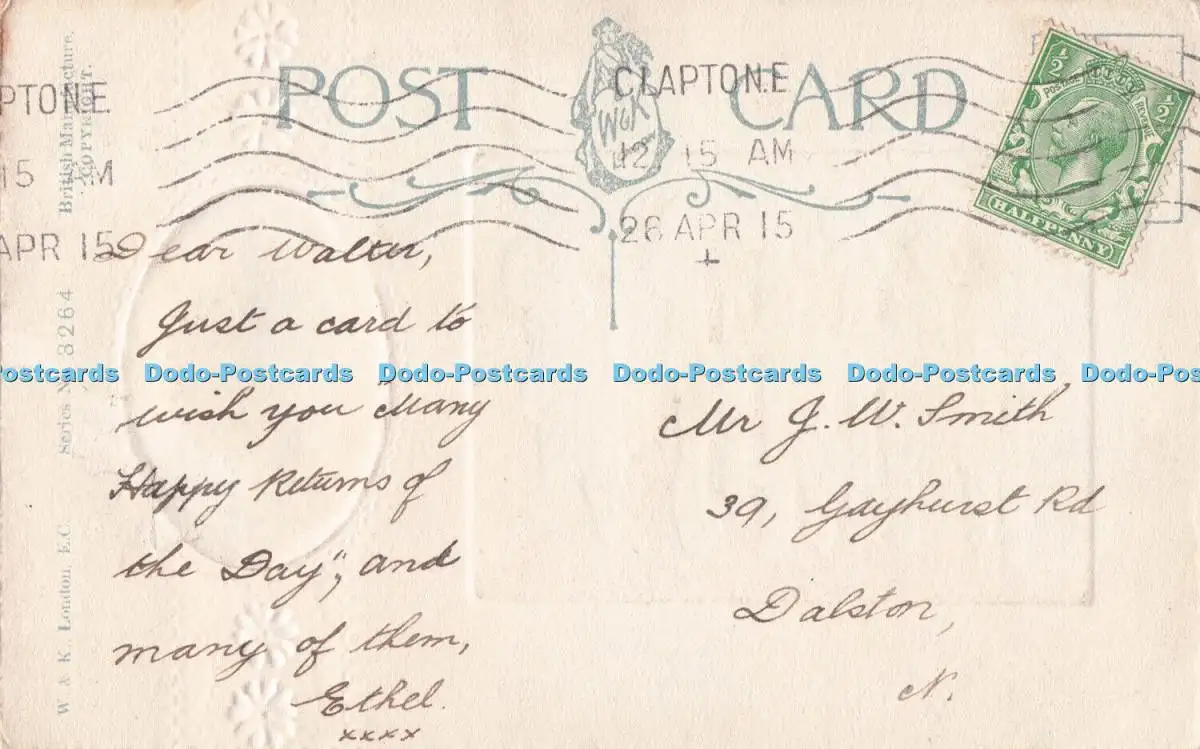 POST CARD
W&K
CLAPTON.E
12 15 AM
26 APR 15
PTON.E
15 AM
APR 15
½ ½
POSTAGE REVENUE
HALFPENNY
British Manufacture.
COPYRIGHT.
Series No 3264
W & K. London, E.C.
Dear Walter,
Just a card to
wish you "Many
Happy Returns of
the Day", and
many of them,
Ethel.
xxxx
Mr J. W. Smith
39, Gayhurst Rd
Dalston,
N.
Dodo-Postcards Dodo-Postcards Dodo-Postcards Dodo-Postcards Dodo-Postcards Dodo-Postcards